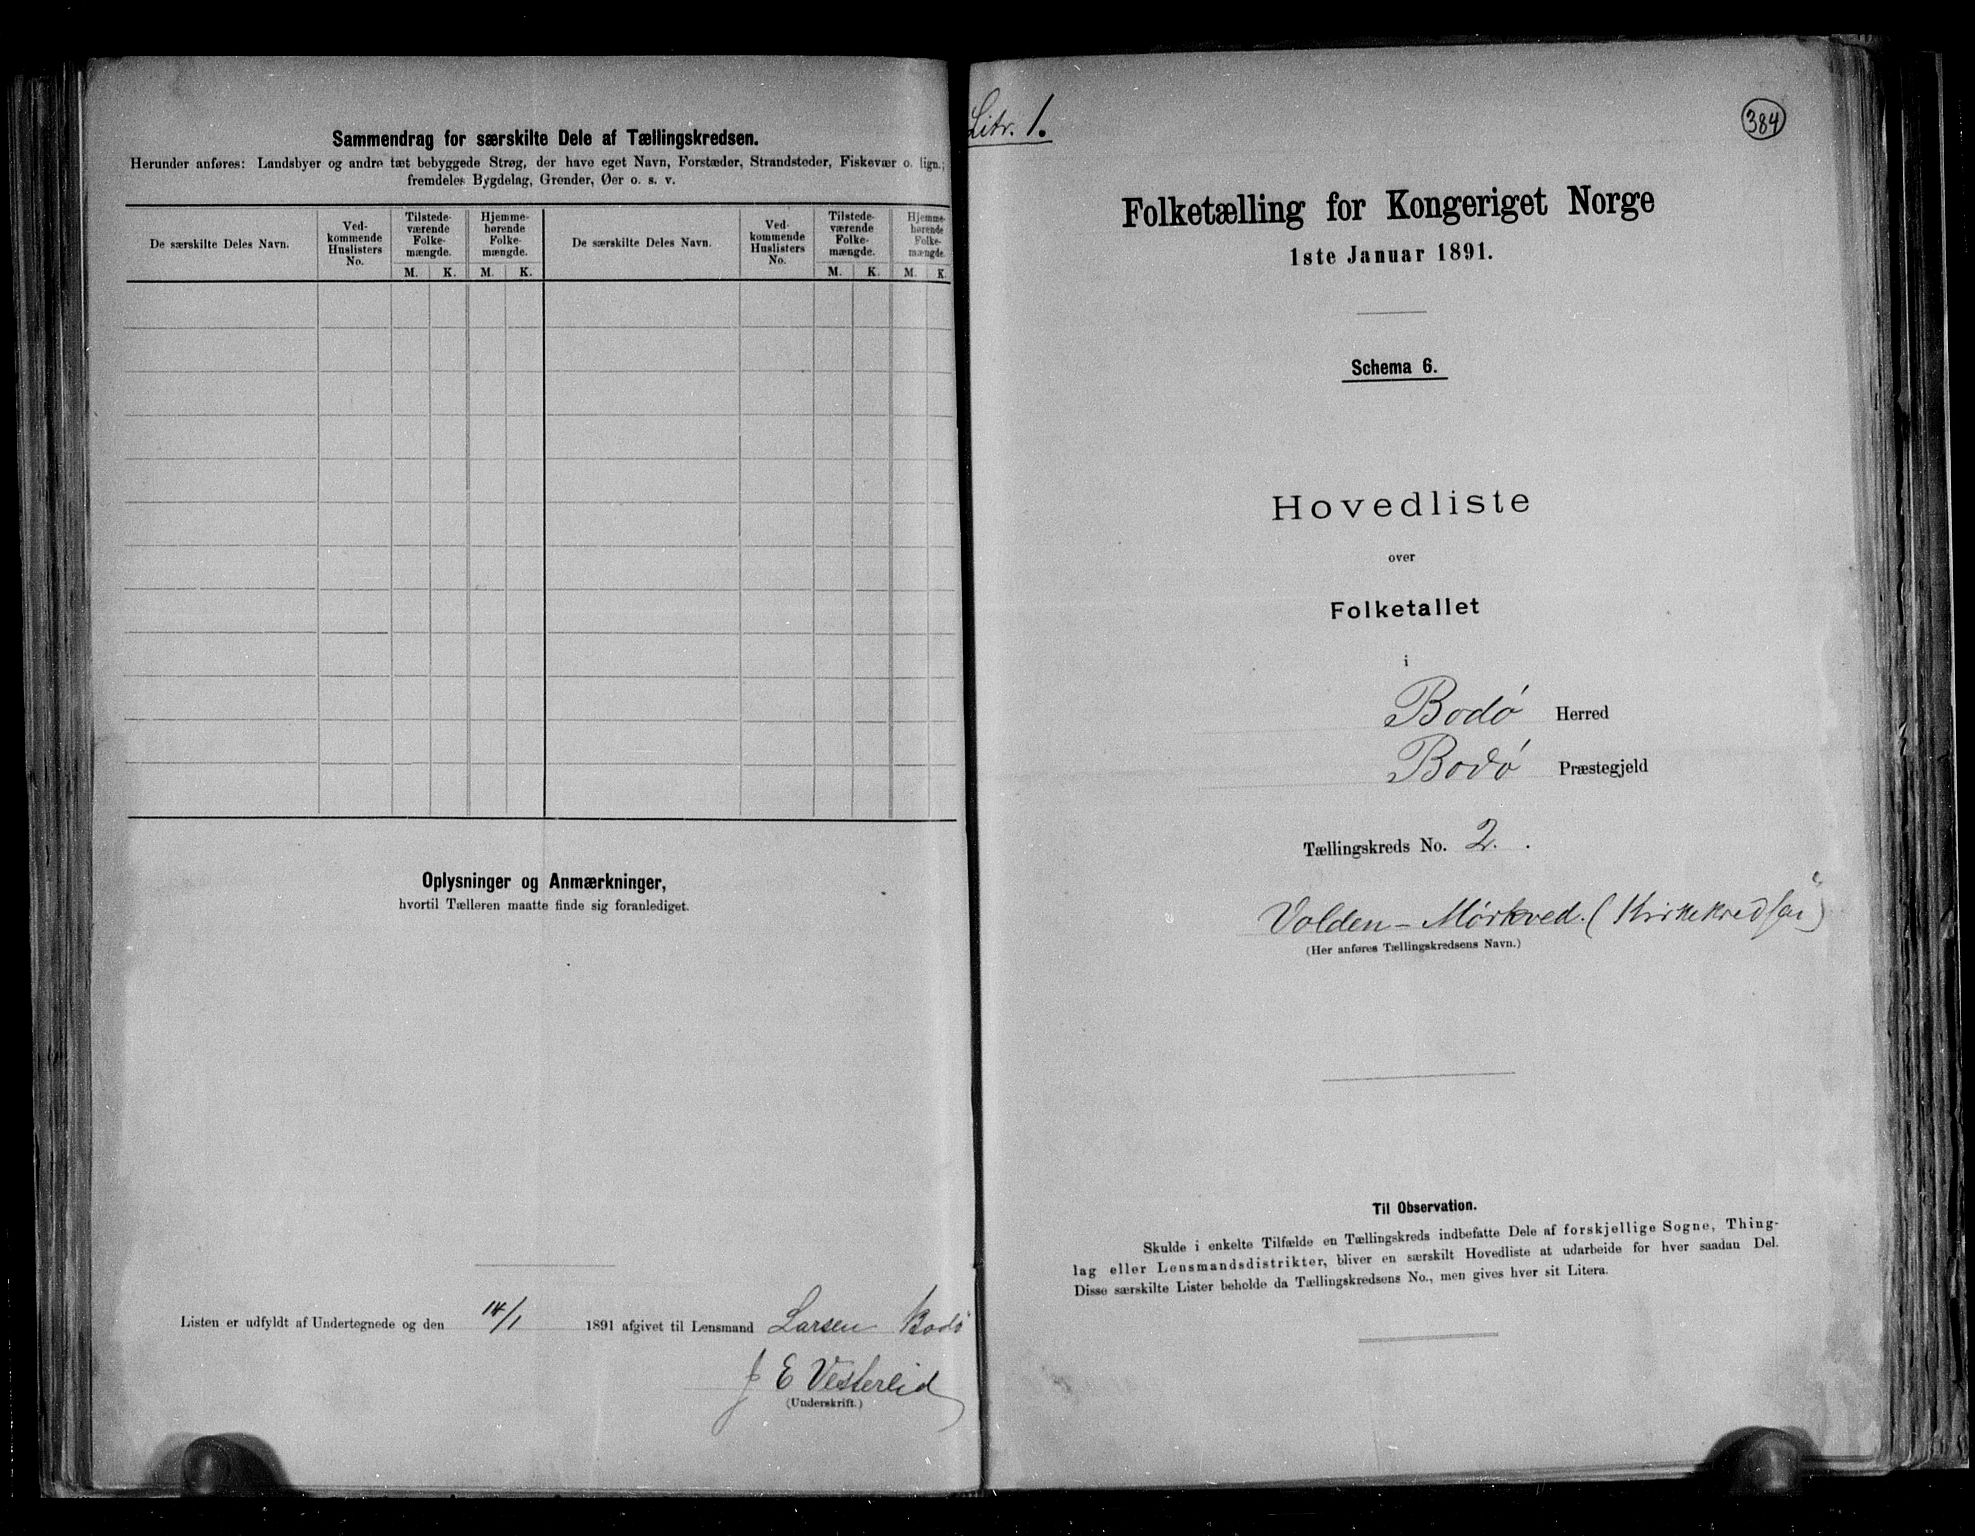 Sammendrag for særskilte Dele af Tællingskredsen.
Herunder anføres: Landsbyer og andre tæt bebyggede Strøg, der have eget Navn, Forstæder, Strandsteder, Fiskevær o. lign.;
fremdeles Bygdelag, Grender, Øer o. s. v.
De særskilte Deles Navn.
Ved-
kommende
Huslisters
No.
Tilstede-
værende
Folke-
mængde.
Hjemme-
hørende
Folke-
mængde.
De særskilte Deles Navn.
Ved-
kommende
Huslisters
No.
Tilstede-
værende
Folke-
mængde.
Hjemme-
hørende
Folke-
mængde.
M. K. M. K. M. K. M. K.
Oplysninger og Anmærkninger,
hvortil Tælleren maatte finde sig foranlediget.
Listen er udfyldt af Undertegnede og den 14/1 1891 afgivet til Lensmand Larsen Bodø
J E Vesterlid
(Underskrift.)
Litr. 1.
384
Folketælling for Kongeriget Norge
1ste Januar 1891.
Schema 6.
Hovedliste
over
Folketallet
i
Bodø Herred
Bodø Præstegjeld
Tællingskreds No. 2.
Volden - Mørkved. (Kirkekredsen)
(Her anføres Tællingskredsens Navn.)
Til Observation.
Skulde i enkelte Tilfælde en Tællingskreds indbefatte Dele af forskjellige Sogne, Thing-
lag eller Lensmandsdistrikter, bliver en særskilt Hovedliste at udarbeide for hver saadan Del.
Disse særskilte Lister beholde da Tællingskredsens No., men gives hver sit Litera.